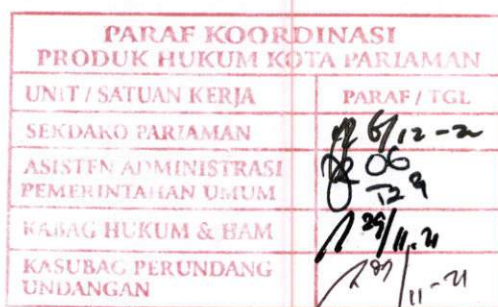 PARAF KOORDINASI
PRODUK HUKUM KOTA PARIAMAN
UNIT / SATUAN KERJA PARAF / TGL
SEKDAKO PARIAMAN 6/12-21
ASISTEN ADMINISTRASI
PEMERINTAHAN UMUM 06
KABAG HUKUM & HAM 29/11-21
KASUBAG PERUNDANG
UNDANGAN 11-21